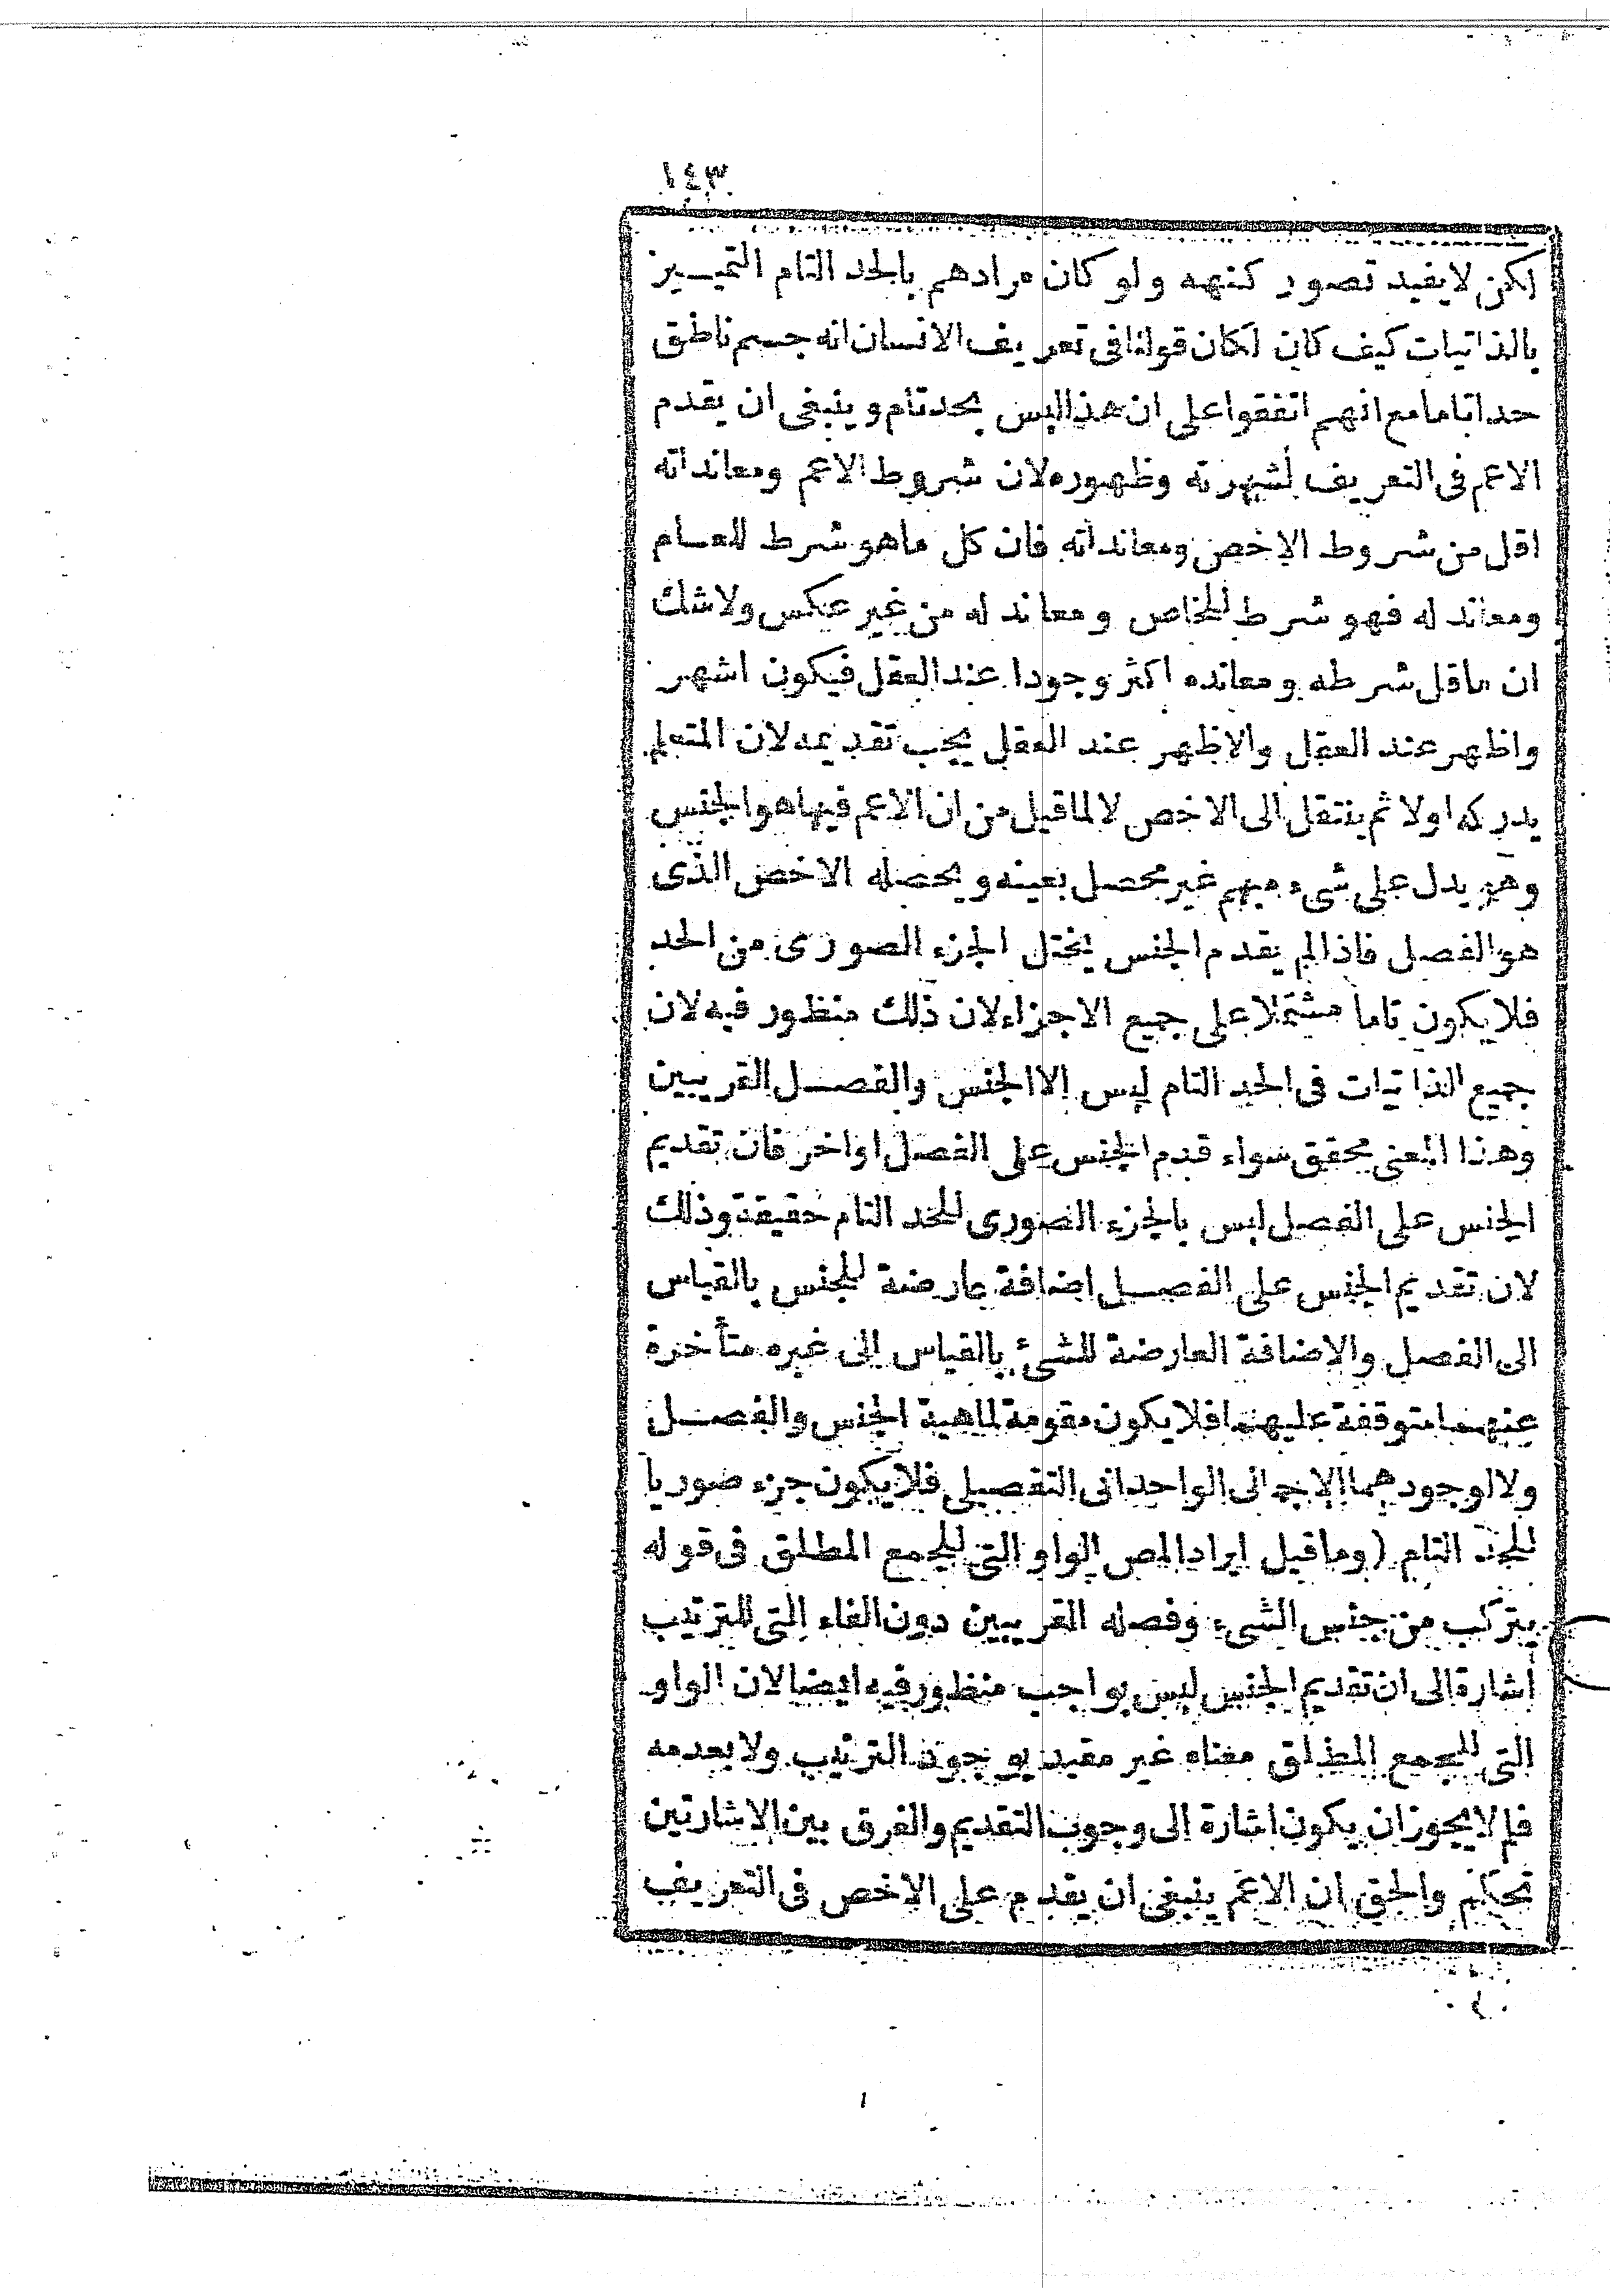 ١٤٣
لكن لا يفيد تصور كنهه ولو كان مرادهم بالحد التام التمييز
بالذاتيات كيف كان لكان قولنا في تعريف الانسان انه جسم ناطق
حدا تاما مع انهم اتفقوا على ان هذا ليس بحد تام وينبغى ان يقدم
الاعم فى التعريف لشهرته وظهوره لان شروط الاعم ومعانداته
اقل من شروط الاخص ومعانداته فان كل ما هو شرط للعام
ومعاند له فهو شرط للخاص ومعاند له من غير عكس ولا شك
ان ما قل شرطه ومعانده اكثر وجودا عند العقل فيكون اشهر
واظهر عند العقل والاظهر عند العقل يجب تقديمه لان المتعلم
يدركه اولا ثم ينتقل الى الاخص لا لما قيل من ان الاعم فيها هو الجنس
وهو يدل على شىء مبهم غير محصل بعينه ويحصله الاخص الذى
هو الفصل فاذا لم يقدم الجنس يختل الجزء الصورى من الحد
فلا يكون تاما مشتملا على جميع الاجزاء لان ذلك منظور فيه لان
جميع الذاتيات فى الحد التام ليس الا الجنس والفصل القريبين
وهذا المعنى محقق سواء قدم الجنس على الفصل او اخر فان تقديم
الجنس على الفصل ليس بالجزء الصورى للحد التام حقيقة وذلك
لان تقديم الجنس على الفصل اضافة عارضة للجنس بالقياس
الى الفصل والاضافة العارضة للشئ بالقياس الى غيره متأخرة
عنهما متوقفة عليهما فلا يكون مقومة لماهية الجنس والفصل
ولا لوجودهما الاجمالى الواحدانى التفصيلى فلا يكون جزء صوريا
للحد التام (وما قيل ايراد المص الواو التى للجمع المطلق فى قوله
يتركب من جنس الشىء وفصله القريبين دون الفاء التى للترتيب
اشارة الى ان تقديم الجنس ليس بواجب منظور فيه ايضا لان الواو
التى للجمع المطلق معناه غير مقيد بوجود الترتيب ولا بعدمه
فلم لا يجوز ان يكون اشارة الى وجوب التقديم والفرق بين الاشارتين
تحكم والحق ان الاعم ينبغى ان يقدم على الاخص فى التعريف